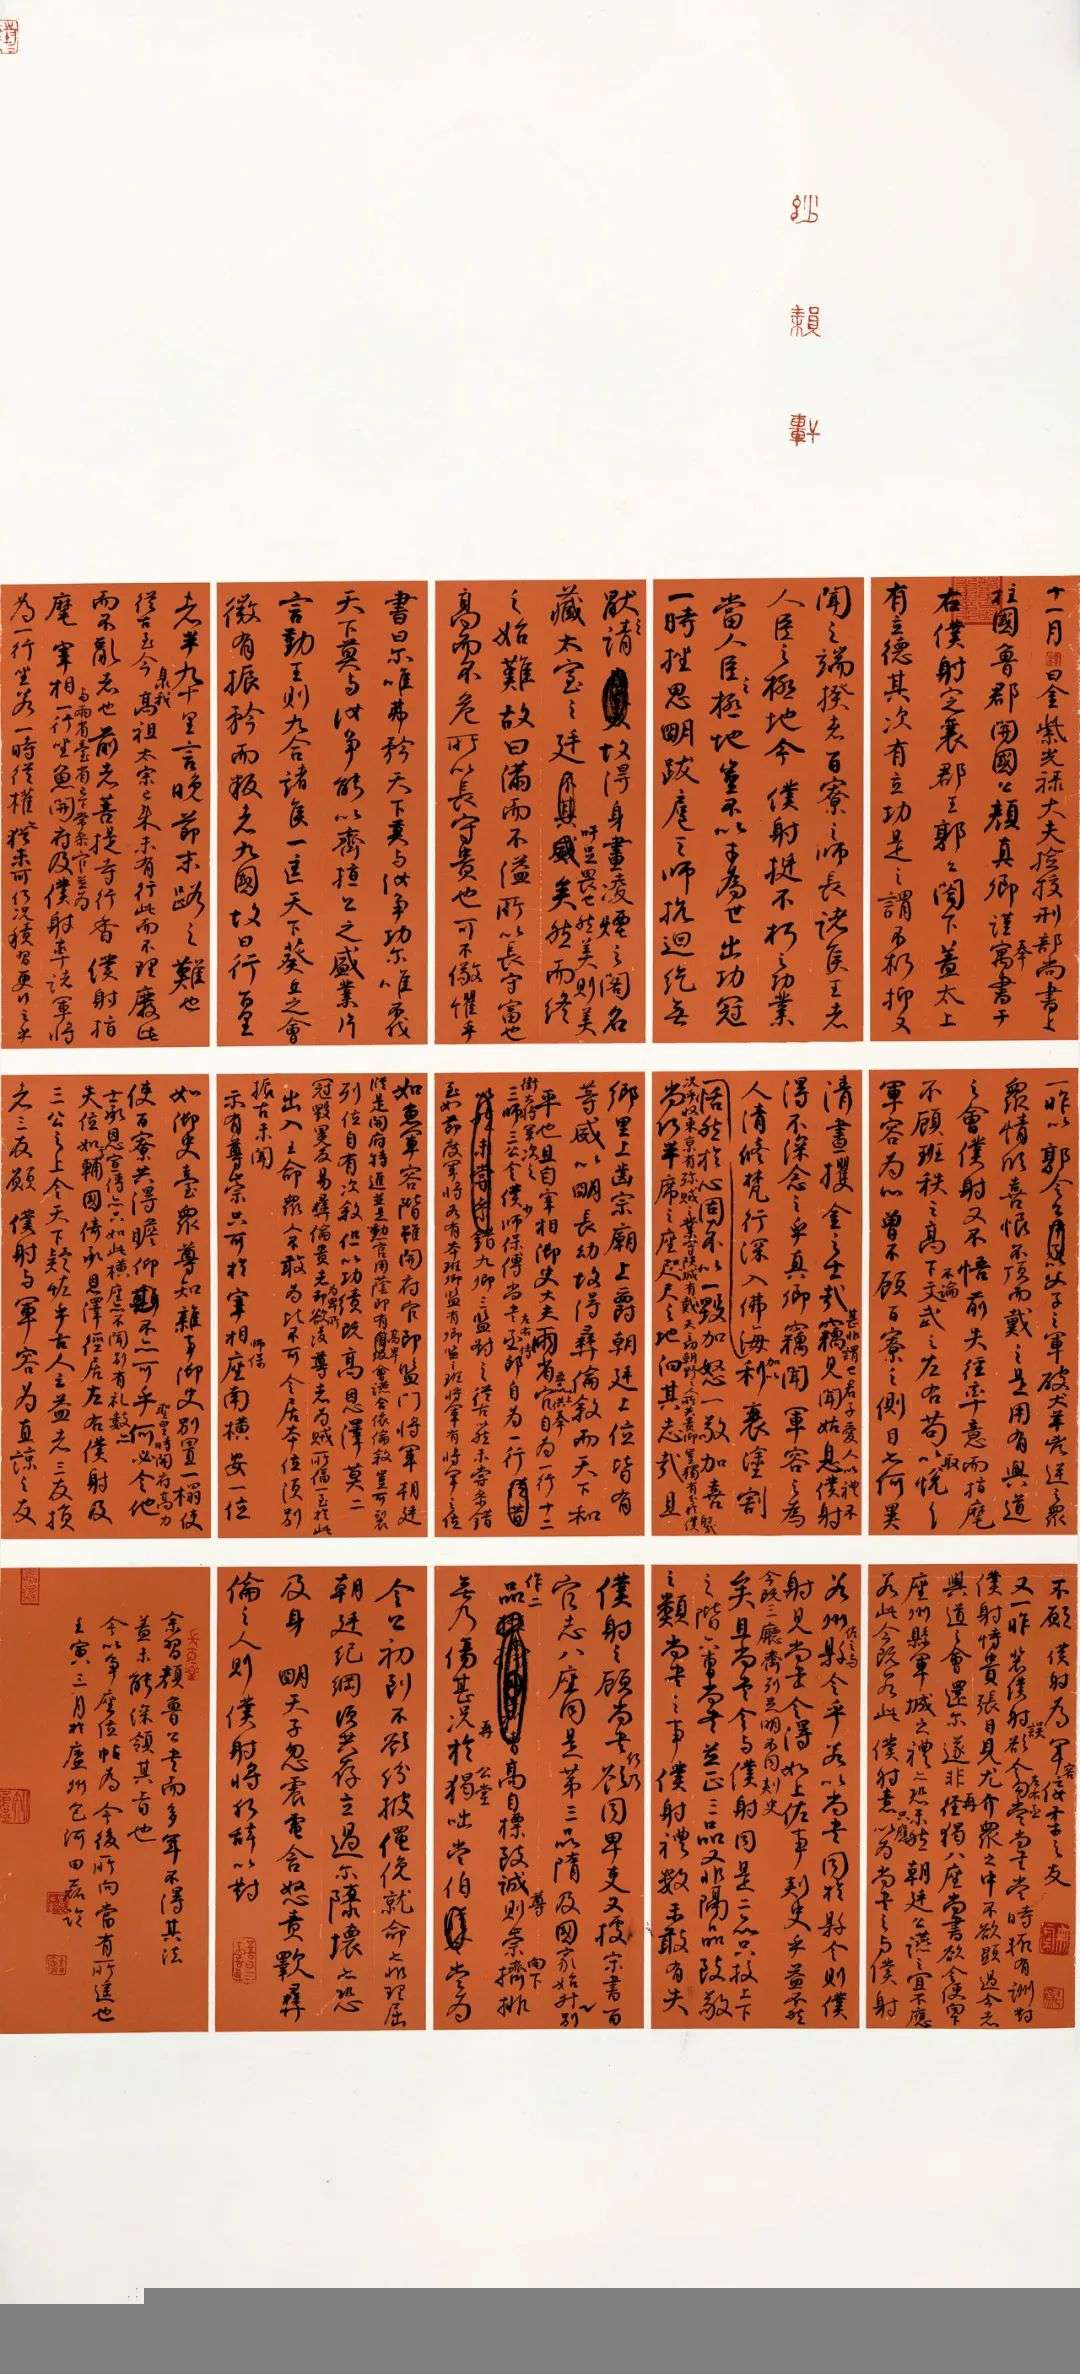 妙韻軒
十一月 日金紫光祿大夫撿挍刑部尚書上
柱國魯郡開國公顏真卿謹奉寓書于
右僕射定襄郡王郭公閤下蓋太上
有立德其次有立功是之謂不朽抑又
聞之端揆者百寮之師長諸侯王者
人臣之極地今僕射挺不朽之功業
當人臣之極地豈不以才為世出功冠
一時挫思明跋扈之師抗迴紇無
猒之請故得身畫凌煙之閣名
藏太室之廷吁足畏也然美則美
矣然而終
之始難故曰滿而不溢所以長守富也
高而不危所以長守貴也可不儆懼乎
書曰尔唯弗矜天下莫与汝爭功尔唯不伐
天下莫与汝爭能以齊桓公之盛業片
言勤王則九合諸侯一匡天下葵丘之會
微有振矜而叛者九國故曰行百里
者半九十里言晚節末路之難也
從古至今泉我高祖太宗已來未有行此而不理廢此
而不亂者也前者菩提寺行香僕射指
麾宰相与兩省臺省已下常參官並為一行坐魚開府及僕射率諸軍將
為一行坐若一時從權猶未可何況積習更行之乎
一昨以郭令公以父子之軍破犬羊兇逆之眾
眾情欣喜恨不頂而戴之是用有興道
之會僕射又不悟前失徑率意而指麾
不顧班秩之高下不論文武之左右苟以取悅
軍容為心曾不顧百寮之側目亦何異
清晝攫金之士哉甚非謂也君子愛人以禮不
竊見聞姑息僕射
得不深念之乎真卿竊聞軍容之為
人清修梵行深入佛海
利衰塗割
恬然於心固不以一毀加怒一敬加喜
尚何半席之座咫尺之地汩其志哉且
鄉里上齒宗廟上爵朝廷上位皆有
等威以明長幼故得彝倫敘而天下和
平也且自宰相御史大夫兩省五品以上供奉官自為一行十二
衛大將軍次之三師三公令僕少師保傅尚書左右丞侍郎自為一行
九卿三監對之從古以然未嘗參錯
至如節度軍將各有本班卿監有卿監之班將軍有將軍之位
如魚軍容階雖開府官即監門將軍朝廷
列位自有次敘但以功績既高恩澤莫二
出入王命眾人不敢為比不可令居本位須別
示有尊崇只可於宰相師保座南橫安一位
如御史臺眾尊知雜事御史別置一榻使
使百寮共得瞻仰不亦可乎何必令他
失位如輔國倚承恩澤徑居左右僕射及
三公之上令天下疑怪乎古人云益者三友損
者三友願僕射與軍容為直諒之友
不願僕射為軍容佞柔之友
又一昨裴僕射誤欲令左右丞勾當尚書當時輒有詶對
僕射恃貴張目見尤介眾之中不欲顯過今者
興道之會還尓遂非再徑猲八座尚書欲令便向下
座州縣軍城之禮亦恐未然朝廷公讌之宜不應
若此今既若此僕射意只應以為尚書之与僕射
若州佐之与縣令乎若以尚書同於縣令則僕
射見尚書令得如上佐事刺史乎益不然
矣今既三廳齊列足明不同刺史且尚書令与僕射同是二品只校上下
之階六曹尚書並正三品又非隔品致敬
之類尚書之事僕射禮數未敢有失
僕射之顧尚書何乃欲同卑吏又據宋書百
官志八座同是第三品隋及國家始升別
作二品高自標致誠則尊崇向下擠排
無乃傷甚況再於公堂猲咄常伯當為
令公初到不欲紛披僶俛就命亦非理屈
朝廷紀綱須共存立過尓隳壞亦恐
及身明天子忽震電含怒責斁彝
倫之人則僕射將何辭以對
余習顏魯公書而多年不得其法
蓋未能深領其旨也
今以爭座位帖為今後所向當有所進也
壬寅三月於廬州包河田磊